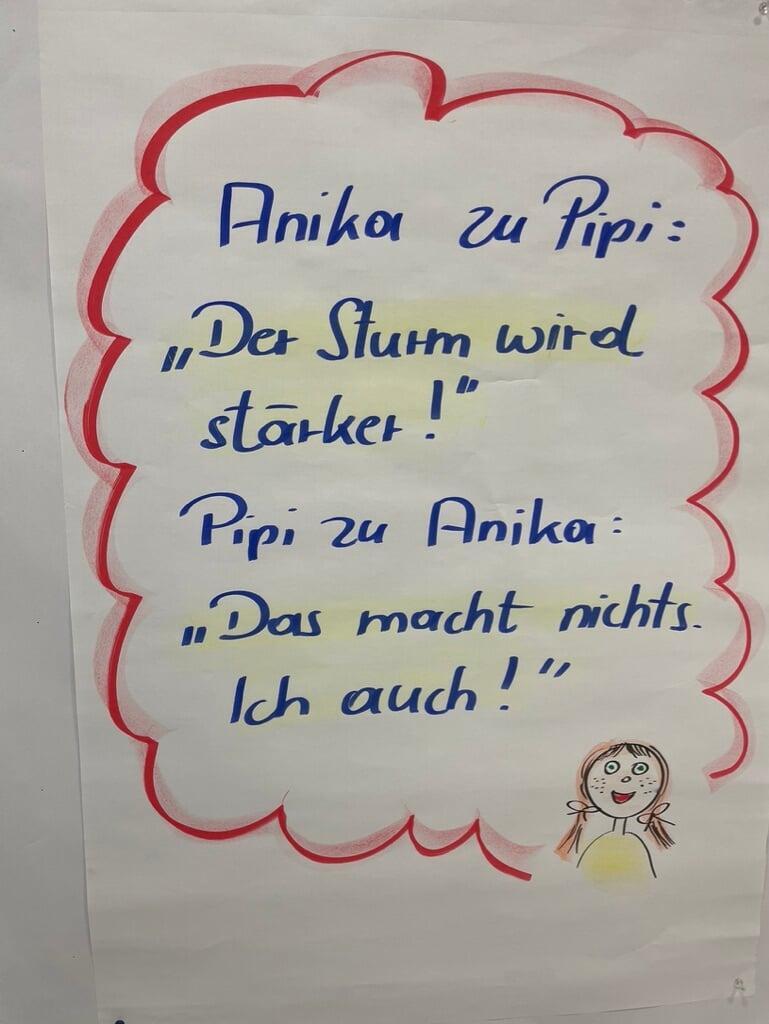 Anika zu Pipi:
„Der Sturm wird
stärker!"
Pipi zu Anika:
„Das macht nichts.
Ich auch!"